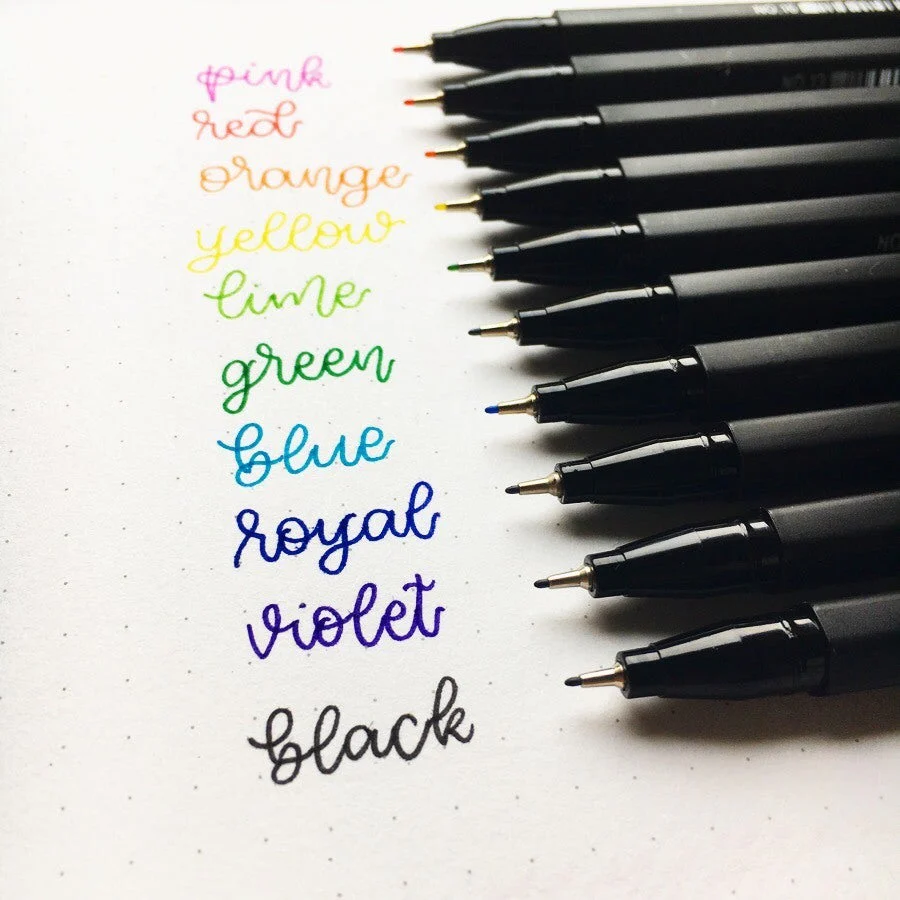 pink
red
orange
yellow
lime
green
blue
royal
violet
black